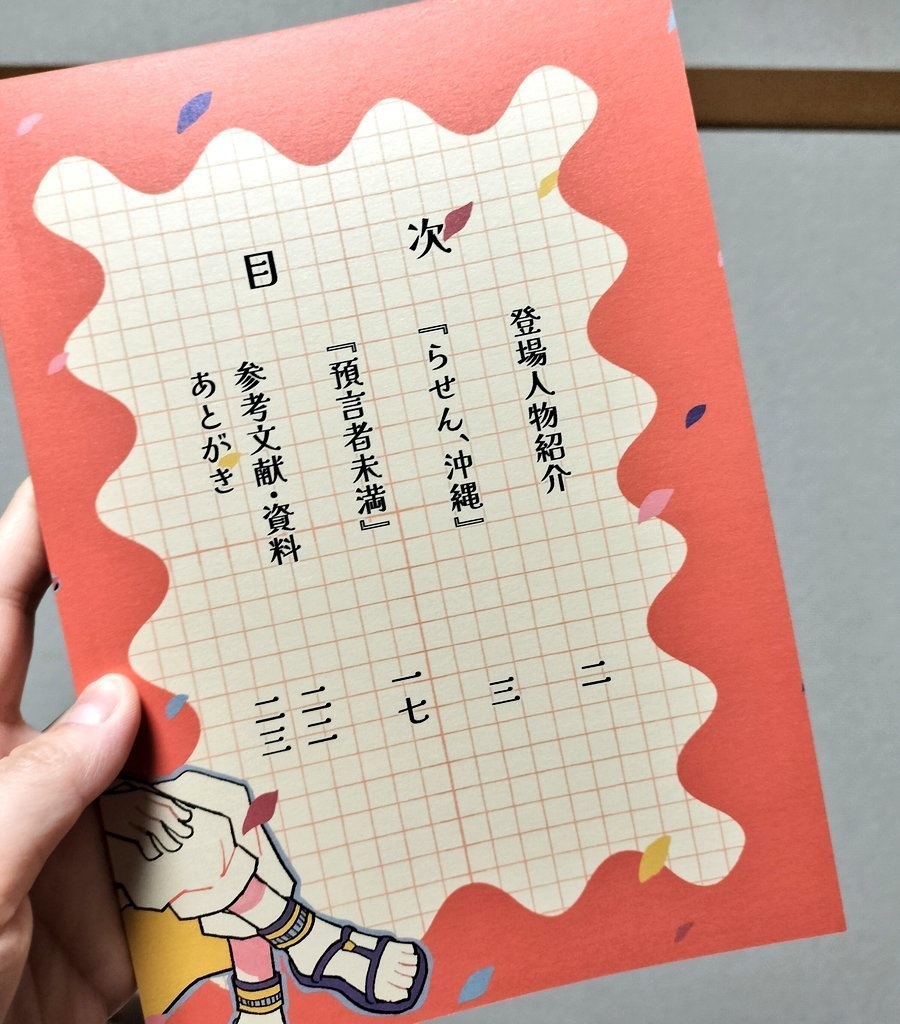 目　次
登場人物紹介　二
『らせん、沖縄』　三
『預言者未満』　一七
参考文献・資料　二二
あとがき　二三